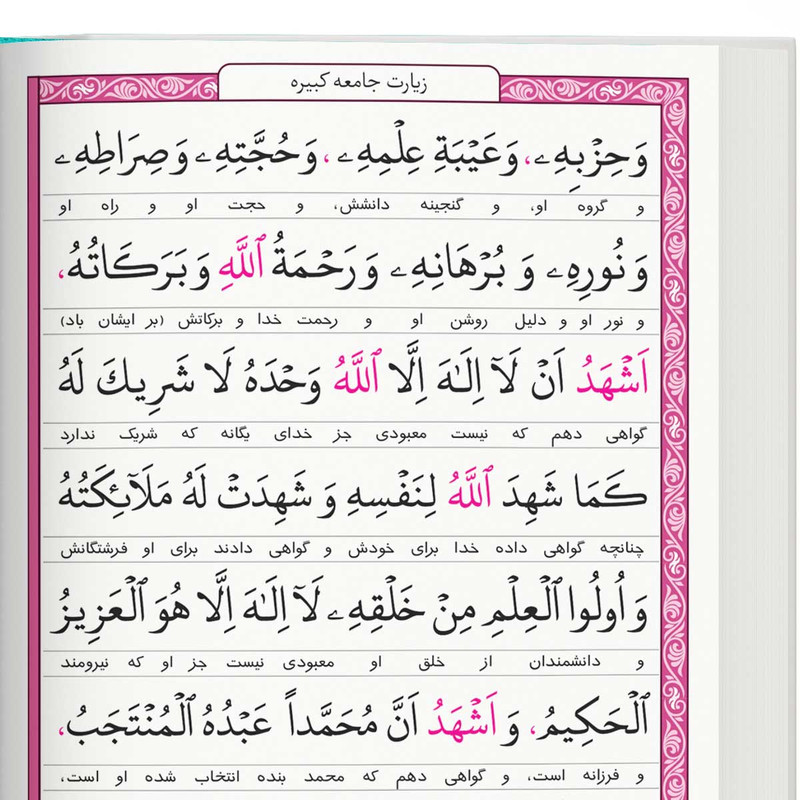 زیارت جامعه کبیره
وَحِزْبِهِۦ، وَعَيْبَةِ عِلْمِهِۦ، وَحُجَّتِهِۦ وَصِرَاطِهِۦ
و گروه او، و گنجینه دانشش، و حجت او و راه او
وَنُورِهِۦ وَ بُرْهَانِهِۦ وَ رَحْمَةُ ٱللَّهِ وَ بَرَكَاتُهُ،
و نور او و دلیل روشن او و رحمت خدا و برکاتش (بر ایشان باد)
اَشْهَدُ اَنْ لَآ اِلَـٰهَ اِلَّا ٱللَّهُ وَحْدَهُ لَا شَرِيكَ لَهُ
گواهی دهم که نیست معبودی جز خدای یگانه که شریک ندارد
كَمَا شَهِدَ ٱللَّهُ لِنَفْسِهِ وَ شَهِدَتْ لَهُ مَلَآئِكَتُهُ
چنانچه گواهی داده خدا برای خودش و گواهی دادند برای او فرشتگانش
وَ اُولُوا ٱلْعِلْمِ مِنْ خَلْقِهِۦ لَآ اِلَـٰهَ اِلَّا هُوَ ٱلْعَزِيزُ
و دانشمندان از خلق او معبودی نیست جز او که نیرومند
ٱلْحَكِيمُ، وَ اَشْهَدُ اَنَّ مُحَمَّداً عَبْدُهُ ٱلْمُنْتَجَبُ،
و فرزانه است، و گواهی دهم که محمد بنده انتخاب شده او است،